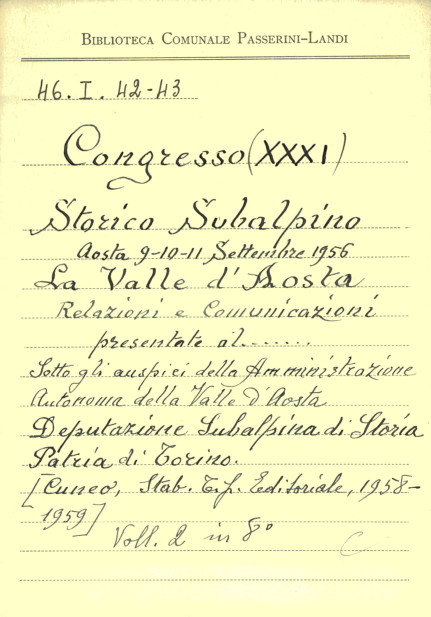 BIBLIOTECA COMUNALE PASSERINI-LANDI
46. I. 42-43
Congresso (XXXI)
Storico Subalpino
Aosta 9-10-11 Settembre 1956
La Valle d'Aosta
Relazioni e Comunicazioni
presentate al.......
Sotto gli auspici della Amministrazione
Autonoma della Valle d'Aosta
Deputazione Subalpina di Storia
Patria di Torino.
[Cuneo, Stab. Tip. Editoriale, 1958-
1959]
Voll. 2 in 8°
C